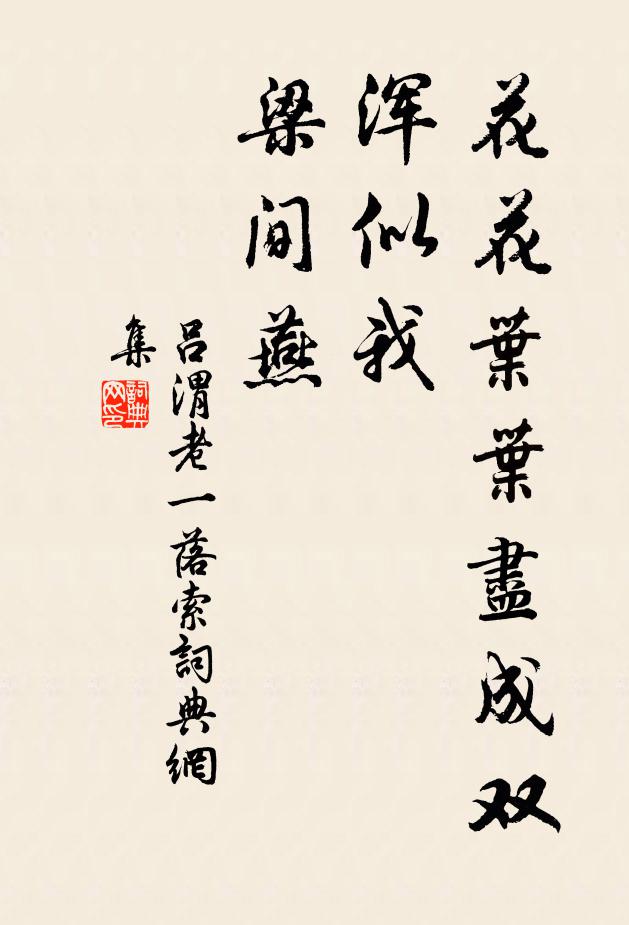 花花葉葉盡成双
浑似我
梁间燕
吕渭老一落索詞典網
集
詞典
网印